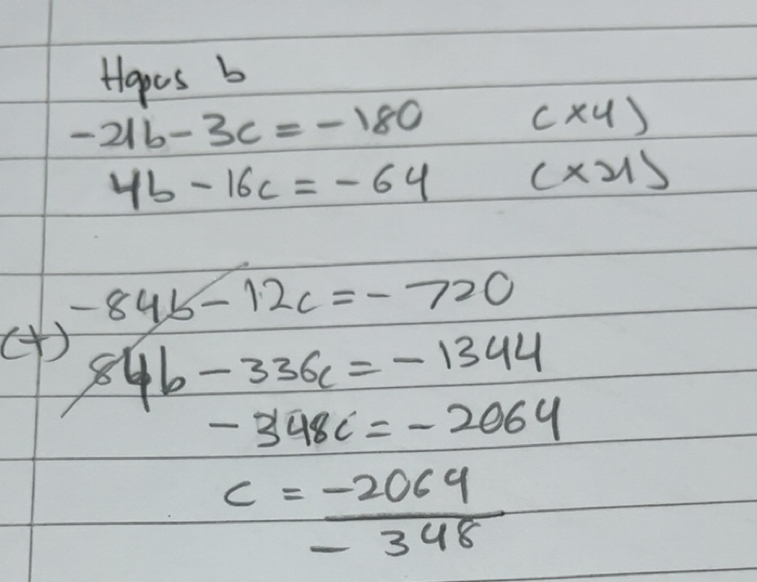 Hapus b
-21b - 3c = -180 (×4)
4b - 16c = -64 (×21)
-84b - 12c = -720
(+) 84b - 336c = -1344
-348c = -2064
c = -2064
-348